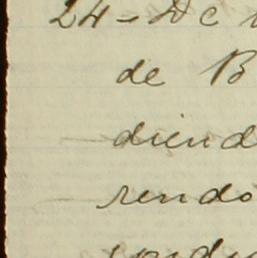 24 - De
de B
diend
rendo